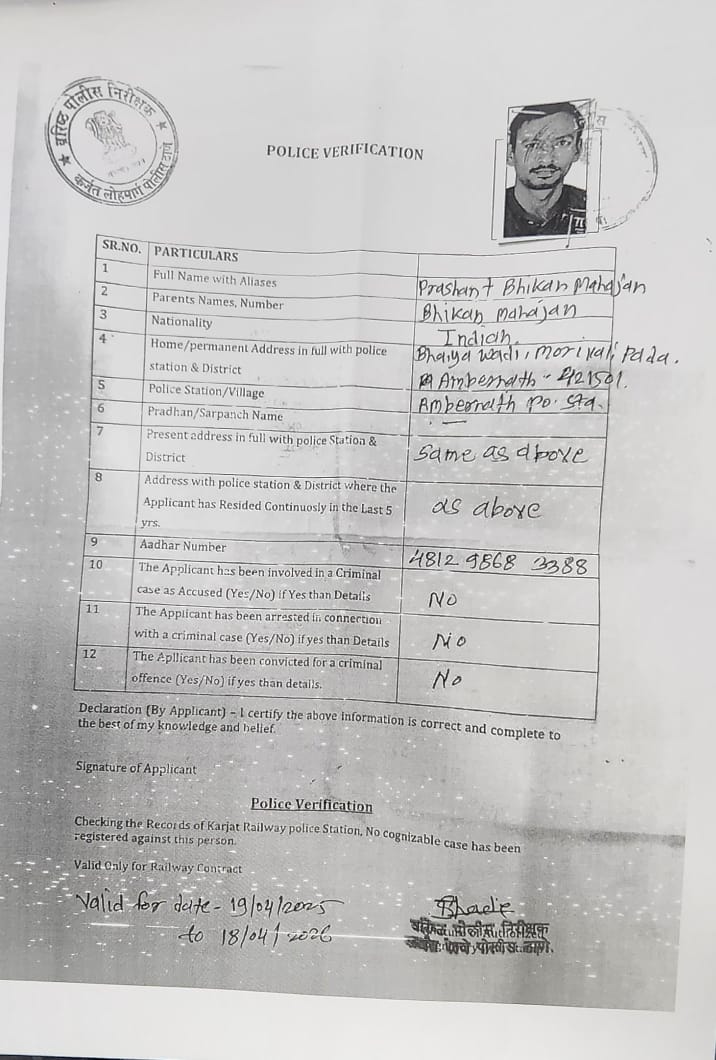 वरिष्ठ पोलीस निरीक्षक
कर्जत लोहमार्ग पोलीस ठाणे
POLICE VERIFICATION
SR.NO. PARTICULARS
1 Full Name with Aliases Prashant Bhikan Mahajan
2 Parents Names, Number Bhikan mahajan
3 Nationality Indian.
4 Home/permanent Address in full with police Bhaiya wadi, morivali Pada.
station & District Ambernath - 421501.
5 Police Station/Village Ambernath po. sta.
6 Pradhan/Sarpanch Name —
7 Present address in full with police Station & same as above
District
8 Address with police station & District where the
Applicant has Resided Continuosly in the Last 5 as above
yrs.
9 Aadhar Number 4812 9868 3388
10 The Applicant has been involved in a Criminal
case as Accused (Yes/No) if Yes than Details No
11 The Applicant has been arrested in connection
with a criminal case (Yes/No) if yes than Details No
12 The Apllicant has been convicted for a criminal
offence (Yes/No) if yes than details. No
Declaration (By Applicant) – I certify the above information is correct and complete to
the best of my knowledge and belief.
Signature of Applicant
Police Verification
Checking the Records of Karjat Railway police Station, No cognizable case has been
registered against this person.
Valid Only for Railway Contract
Valid for date - 19/04/2025
to 18/04/2026
वरिष्ठ पोलीस निरीक्षक
पोलीस ठाणे.